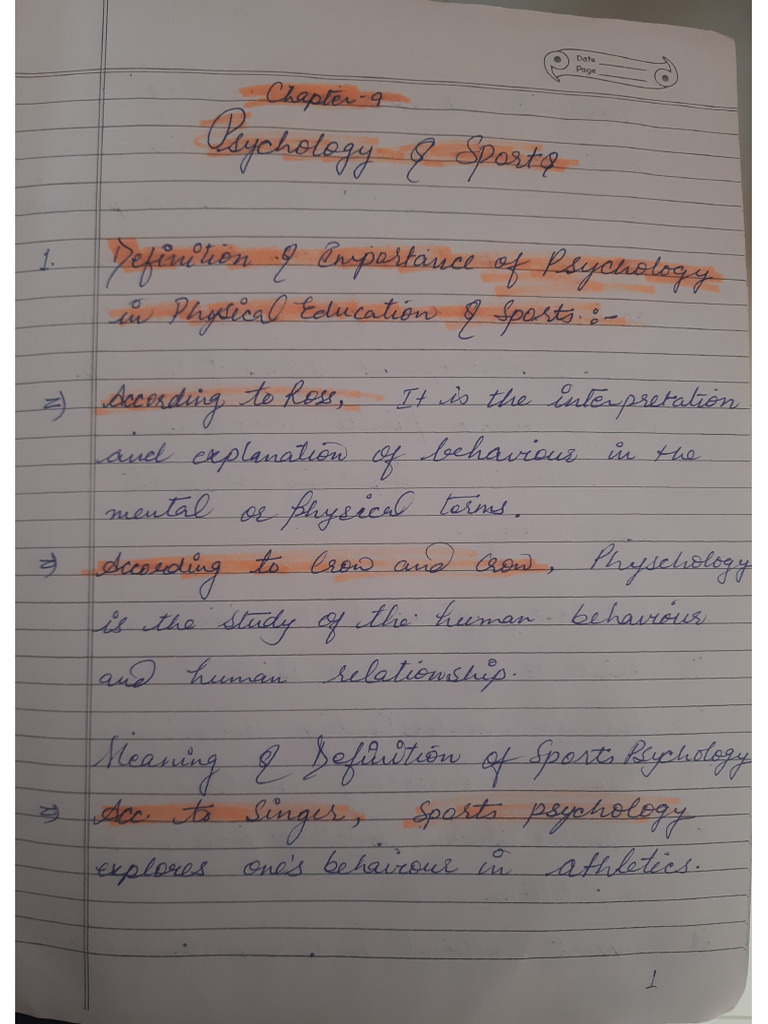 Date
Page
Chapter-9
Psychology & Sports
1. Definition & Importance of Psychology
in Physical Education & Sports :-
=) According to Ross, It is the interpretation
and explanation of behaviour in the
mental or physical terms.
=) According to Crow and Crow, Physchology
is the study of the human behaviour
and human relationship.
Meaning & Definition of Sports Psychology
=) Acc. to Singer, Sports psychology
explores one's behaviour in athletics.
1